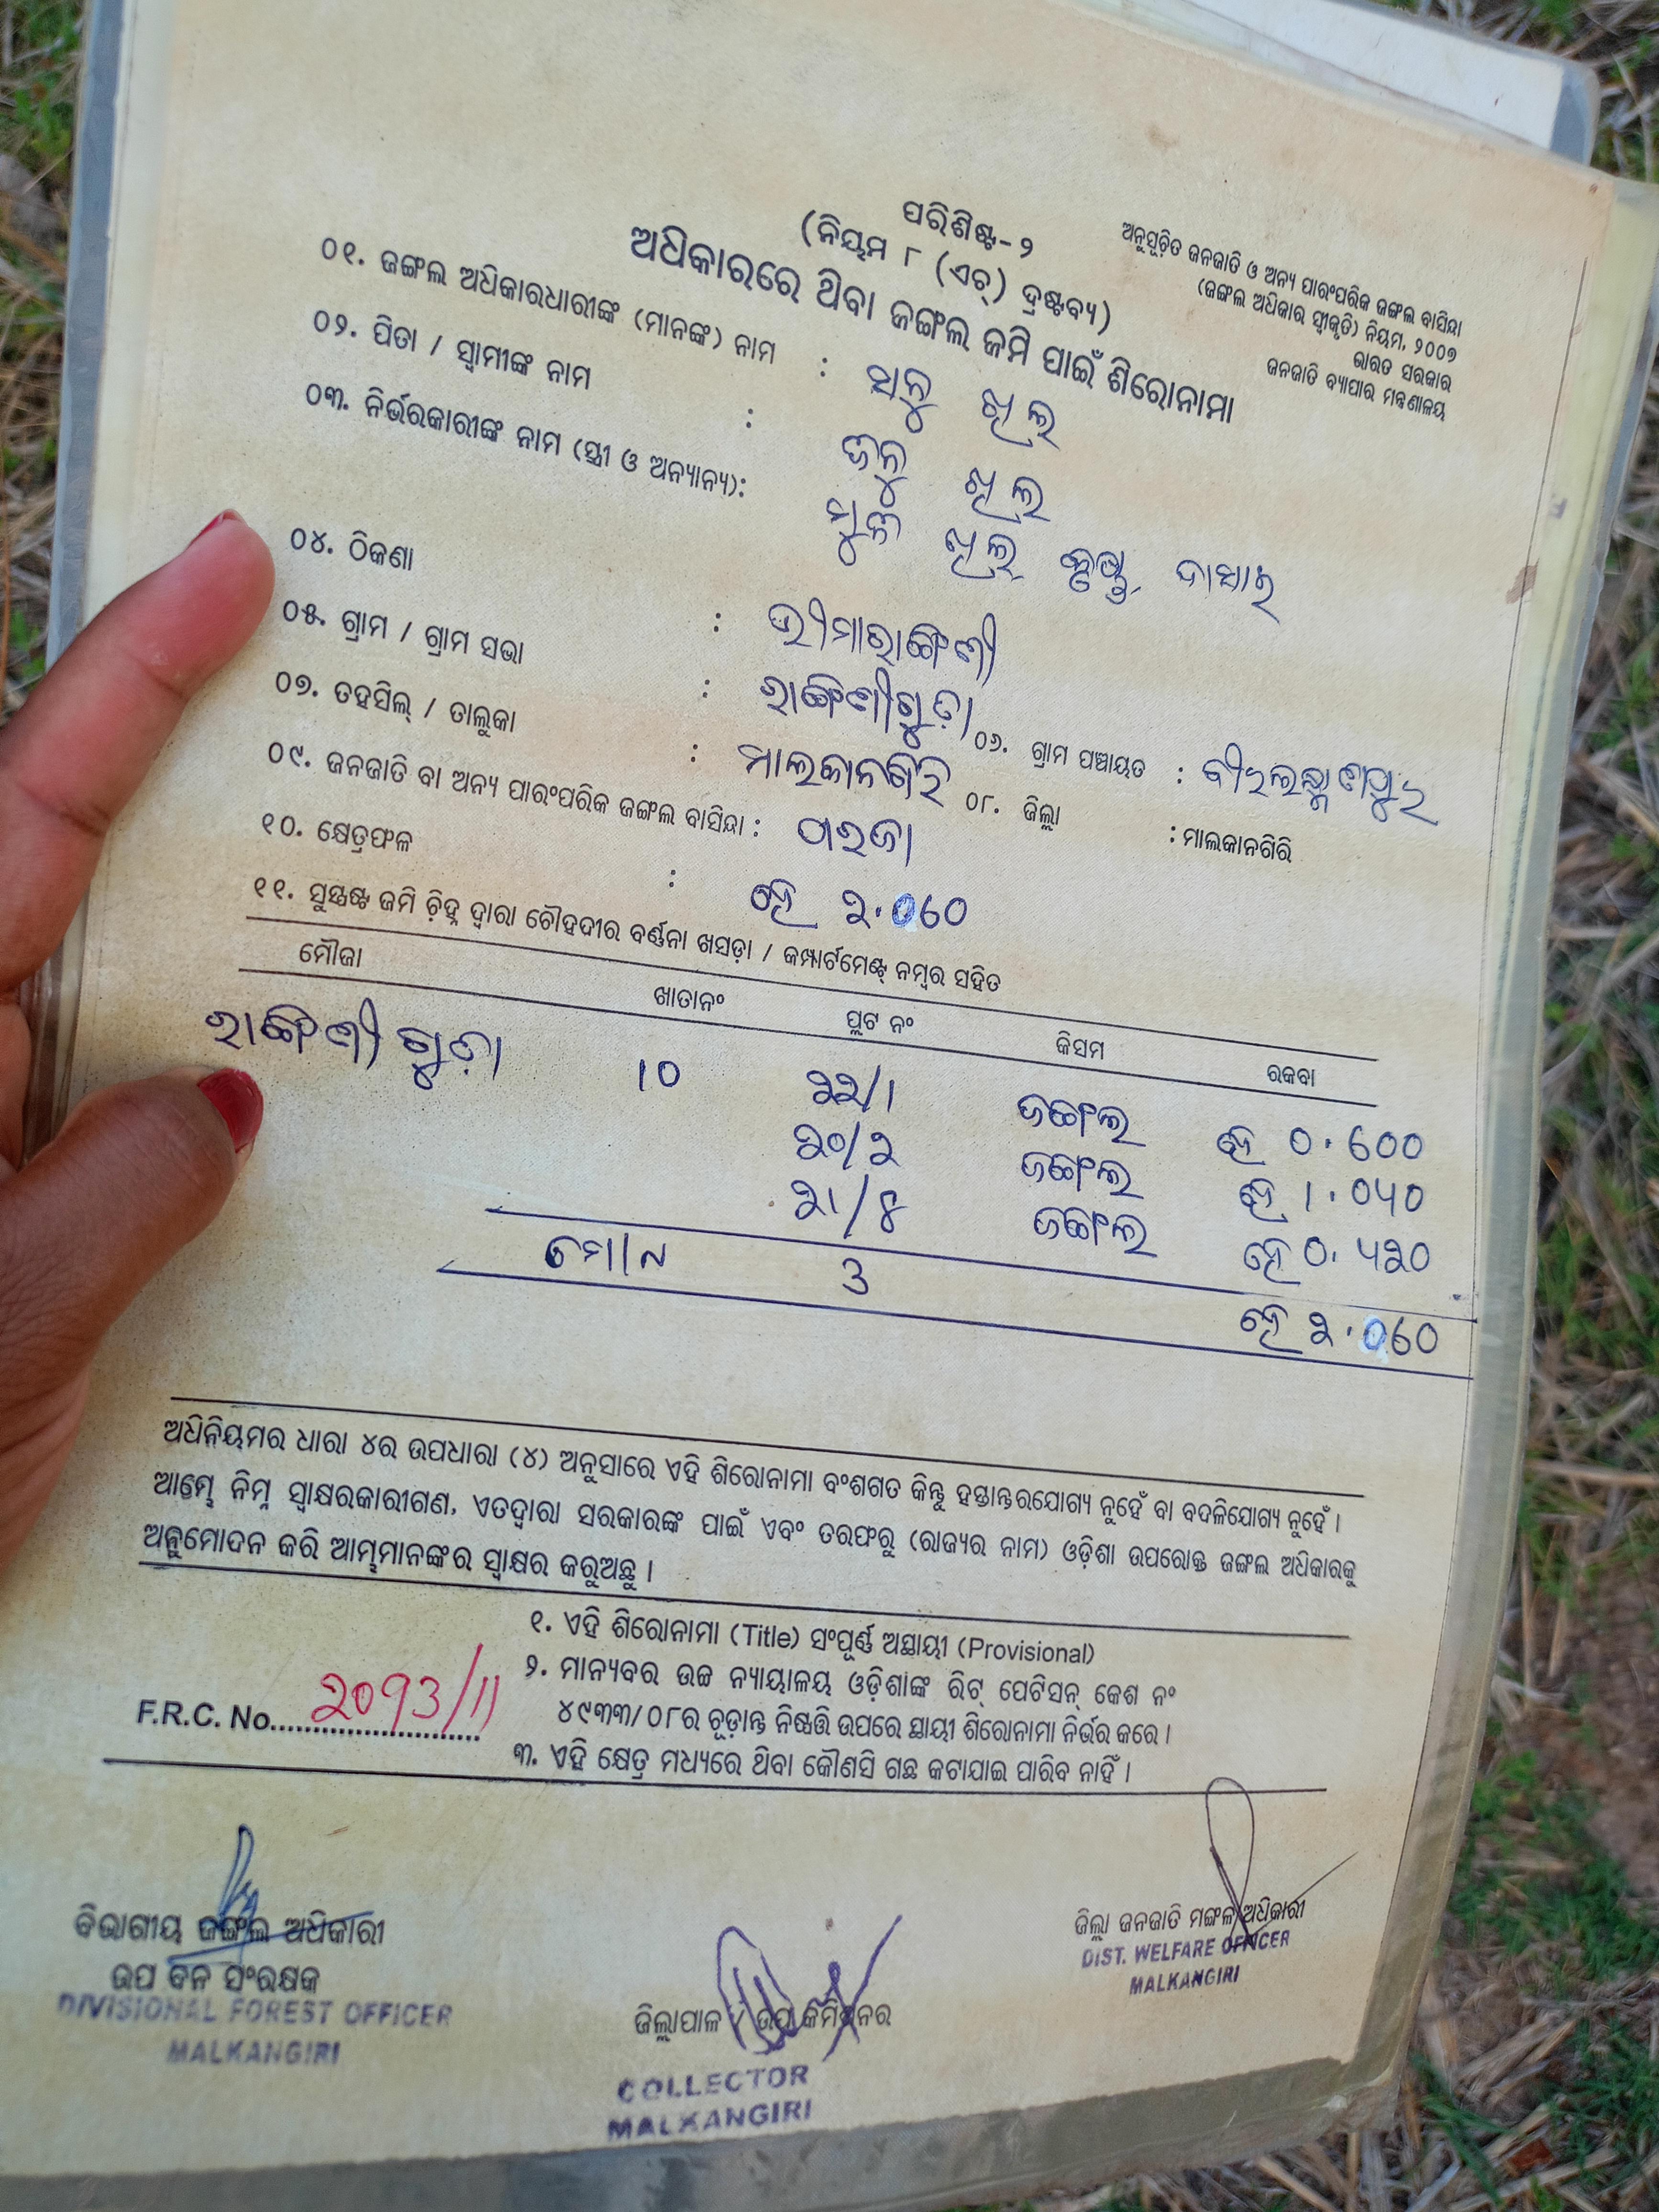 ପରିଶିଷ୍ଟ-୨
(ନିୟମ ୮ (ଏଚ୍) ଦ୍ରଷ୍ଟବ୍ୟ)
ଅଧିକାରରେ ଥିବା ଜଙ୍ଗଲ ଜମି ପାଇଁ ଶିରୋନାମା
ଅନୁସୂଚିତ ଜନଜାତି ଓ ଅନ୍ୟ ପାରଂପରିକ ଜଙ୍ଗଲ ବାସିନ୍ଦା
(ଜଙ୍ଗଲ ଅଧିକାର ସ୍ୱୀକୃତି) ନିୟମ, ୨୦୦୭
ଭାରତ ସରକାର
ଜନଜାତି ବ୍ୟାପାର ମନ୍ତ୍ରଣାଳୟ
୦୧. ଜଙ୍ଗଲ ଅଧିକାରଧାରୀଙ୍କ (ମାନଙ୍କ) ନାମ :
୦୨. ପିତା / ସ୍ୱାମୀଙ୍କ ନାମ :
୦୩. ନିର୍ଭରକାରୀଙ୍କ ନାମ (ସ୍ତ୍ରୀ ଓ ଅନ୍ୟାନ୍ୟ):
୦୪. ଠିକଣା :
୦୫. ଗ୍ରାମ / ଗ୍ରାମ ସଭା : ରାଙ୍ଗିଣୀଗୁଡ଼ା ୦୬. ଗ୍ରାମ ପଞ୍ଚାୟତ : ବୀରଲକ୍ଷ୍ମଣପୁର
୦୭. ତହସିଲ୍ / ତାଲୁକା : ମାଲକାନଗିରି ୦୮. ଜିଲ୍ଲା : ମାଲକାନଗିରି
୦୯. ଜନଜାତି ବା ଅନ୍ୟ ପାରଂପରିକ ଜଙ୍ଗଲ ବାସିନ୍ଦା : ପରଜା
୧୦. କ୍ଷେତ୍ରଫଳ : ହେ ୨.୦୬୦
୧୧. ସୁସ୍ପଷ୍ଟ ଜମି ଚିହ୍ନ ଦ୍ୱାରା ଚୌହଦୀର ବର୍ଣ୍ଣନା ଖସଡ଼ା / କମ୍ପାର୍ଟମେଣ୍ଟ୍ ନମ୍ବର ସହିତ
ମୌଜା ଖାତାନଂ ପ୍ଲଟ ନଂ କିସମ ରକବା
ରାଙ୍ଗିଣୀଗୁଡ଼ା ୧୦ ୨୨/୧ ଜଙ୍ଗଲ ହେ ୦.୬୦୦
୨୦/୨ ଜଙ୍ଗଲ ହେ ୧.୦୪୦
୨୧/୪ ଜଙ୍ଗଲ ହେ ୦.୪୨୦
ମୋଟ ୩ ହେ ୨.୦୬୦
ଅଧିନିୟମର ଧାରା ୪ର ଉପଧାରା (୪) ଅନୁସାରେ ଏହି ଶିରୋନାମା ବଂଶଗତ କିନ୍ତୁ ହସ୍ତାନ୍ତରଯୋଗ୍ୟ ନୁହେଁ ବା ବଦଳିଯୋଗ୍ୟ ନୁହେଁ ।
ଆମ୍ଭେ ନିମ୍ନ ସ୍ୱାକ୍ଷରକାରୀଗଣ, ଏତଦ୍ୱାରା ସରକାରଙ୍କ ପାଇଁ ଏବଂ ତରଫରୁ (ରାଜ୍ୟର ନାମ) ଓଡ଼ିଶା ଉପରୋକ୍ତ ଜଙ୍ଗଲ ଅଧିକାରକୁ
ଅନୁମୋଦନ କରି ଆମ୍ଭମାନଙ୍କର ସ୍ୱାକ୍ଷର କରୁଅଛୁ ।
୧. ଏହି ଶିରୋନାମା (Title) ସଂପୂର୍ଣ୍ଣ ଅସ୍ଥାୟୀ (Provisional)
୨. ମାନ୍ୟବର ଉଚ୍ଚ ନ୍ୟାୟାଳୟ ଓଡ଼ିଶାଙ୍କ ରିଟ୍ ପେଟିସନ୍ କେଶ ନଂ
୪୯୩୩/୦୮ର ଚୂଡ଼ାନ୍ତ ନିଷ୍ପତ୍ତି ଉପରେ ସ୍ଥାୟୀ ଶିରୋନାମା ନିର୍ଭର କରେ ।
୩. ଏହି କ୍ଷେତ୍ର ମଧ୍ୟରେ ଥିବା କୌଣସି ଗଛ କଟାଯାଇ ପାରିବ ନାହିଁ ।
F.R.C. No. ୨୦୨୩/11
ବିଭାଗୀୟ ଜଙ୍ଗଲ ଅଧିକାରୀ
ଉପ ବନ ସଂରକ୍ଷକ
DIVISIONAL FOREST OFFICER
MALKANGIRI
ଜିଲ୍ଲାପାଳ / ଉପ କମିଶନର
COLLECTOR
MALKANGIRI
ଜିଲ୍ଲା ଜନଜାତି ମଙ୍ଗଳ ଅଧିକାରୀ
DIST. WELFARE OFFICER
MALKANGIRI